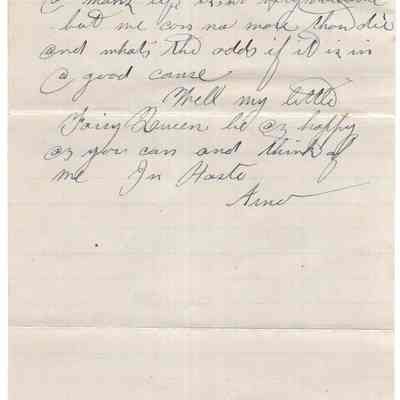 a mans life is
but we can no more than die
and whats the odds if it is in
a good cause
Well my little
Fairy Queen be as happy
as you can and think of
me In Haste